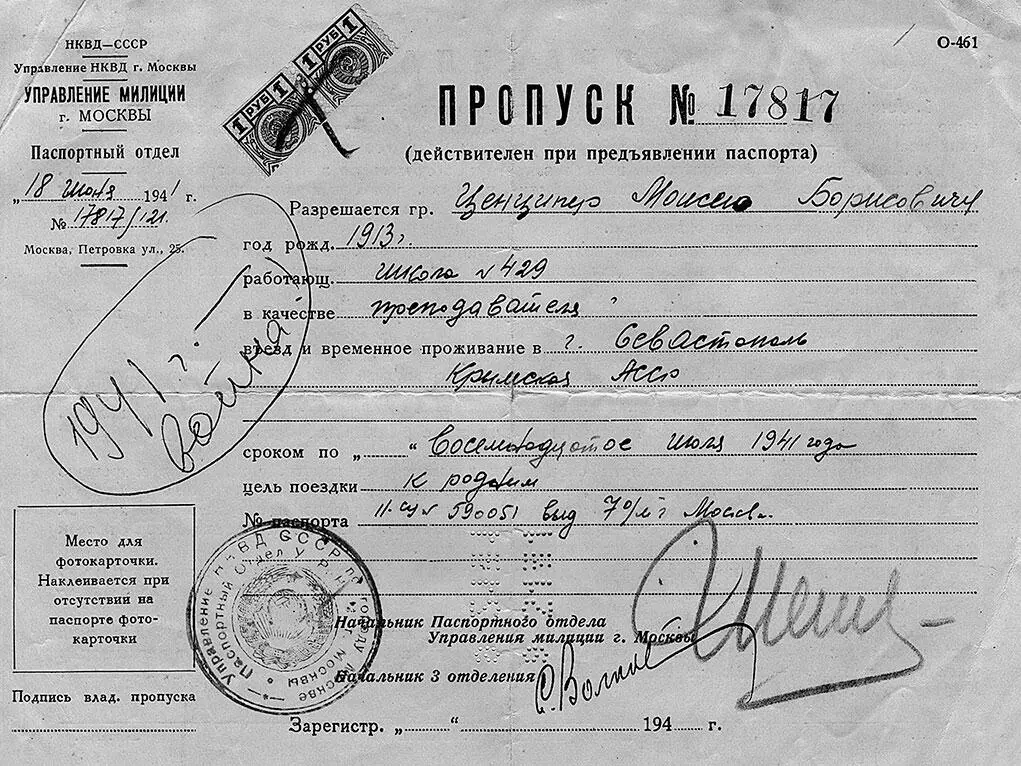 НКВД—СССР
Управление НКВД г. Москвы
УПРАВЛЕНИЕ МИЛИЦИИ
г. МОСКВЫ
Паспортный отдел
„18 июня 1941 г.
№ 17817/121.
Москва, Петровка ул., 25.
1 РУБ 1
1 РУБ 1
О-461
ПРОПУСК № 17817
(действителен при предъявлении паспорта)
Разрешается гр. Ценципер Моисею Борисовичу
год рожд. 1913 г.
работающ. школа № 429
в качестве преподавателя
въезд и временное проживание в г. Севастополь
Крымская АССР
1941 г.
война
сроком по „ “ восемнадцатое июля 1941 года
цель поездки к родным
№ паспорта 590051 выд Москвы
Место для
фотокарточки.
Наклеивается при
отсутствии на
паспорте фото-
карточки
Подпись влад. пропуска
Управление НКВД СССР по городу Москве
Паспортный Отдел У.Р.К.М. г. Москвы
Начальник Паспортного отдела
Управления милиции г. Москвы
Начальник 3 отделения С. Волков
Зарегистр. „ “ 194 г.